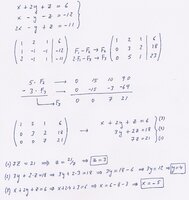 x + 2y + z = 6
x - y - z = -12
2x - y + z = -11
1 2 1 | 6
1 -1 -1 | -12
2 -1 1 | -11
F₁-F₂ → F₂
2·F₁-F₃ → F₃
1 2 1 | 6
0 3 2 | 18
0 5 1 | 23
5·F₂ → 0 15 10 90
-3·F₃ → 0 -15 -3 -69
↳ F₃ 0 0 7 21
1 2 1 | 6
0 3 2 | 18
0 0 7 | 21
→
x + 2y + z = 6 (3)
3y + 2z = 18 (2)
7z = 21 (1)
(1) 7z = 21 ⇒ z = 21/7 ⇒ z = 3
(2) 3y + 2·z = 18 ⇒ 3y + 2·3 = 18 ⇒ 3y = 18 - 6 ⇒ 3y = 12 ⇒ y = 4
(3) x + 2y + z = 6 ⇒ x + 2·4 + 3 = 6 ⇒ x = 6 - 8 - 3 ⇒ x = -5